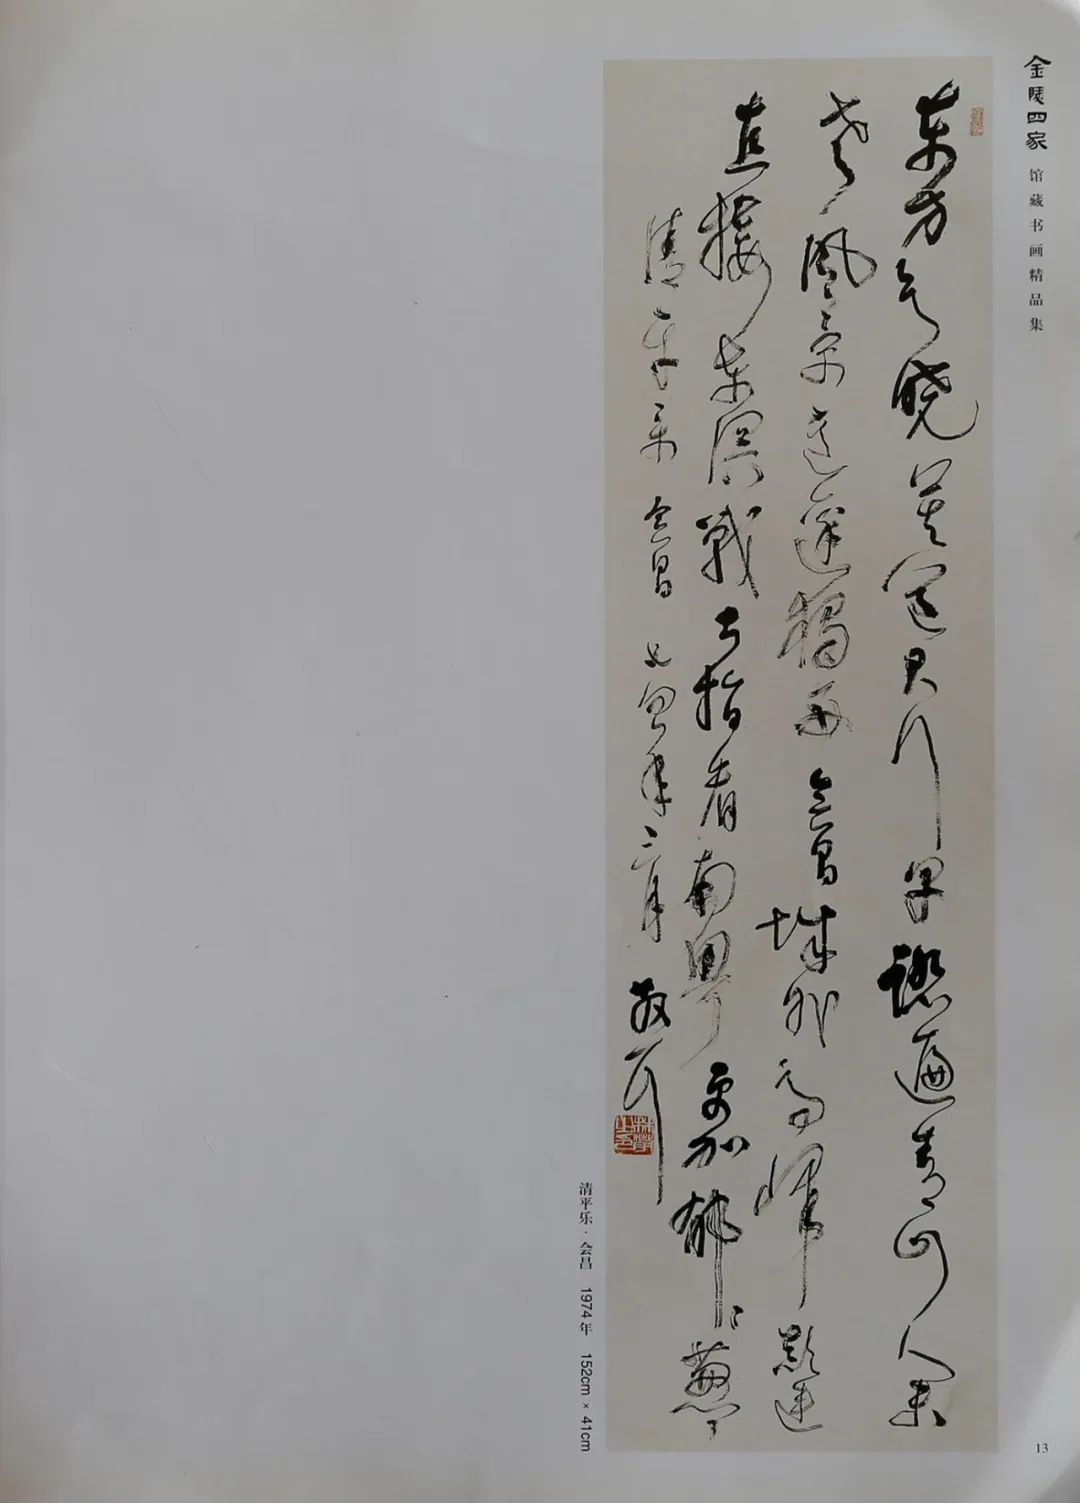 金陵四家 馆藏书画精品集
東方欲曉莫道君行早踏遍青山人未
老風景這邊獨好會昌城外高峰顛連
直接東溟戰士指看南粤更加郁〻葱〻
清平樂 會昌 七四年三月 散耳
清平乐·会昌 1974年 152cm × 41cm
13